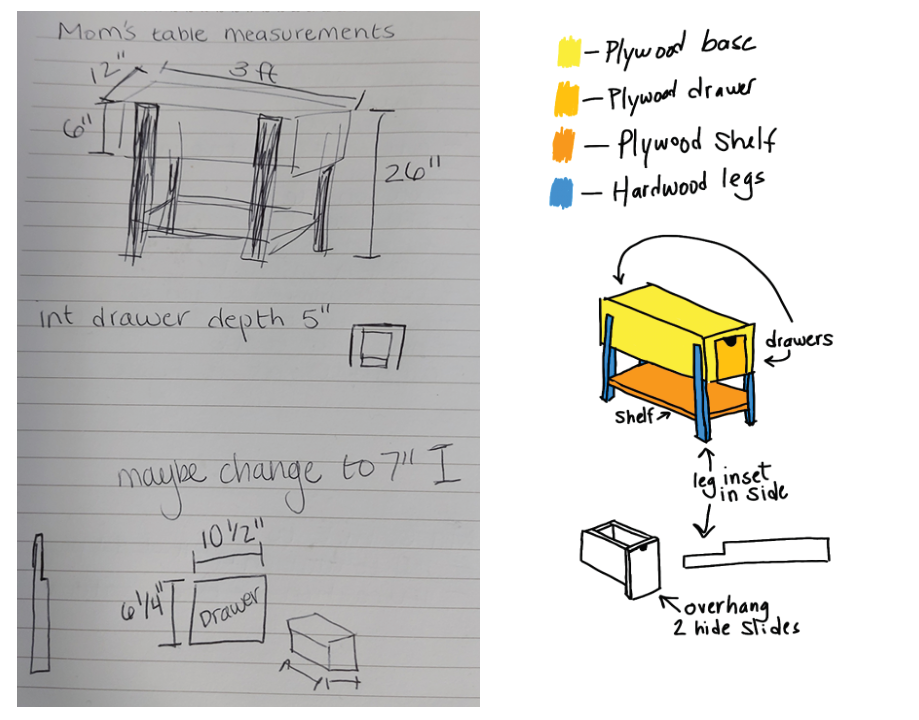 Mom's table measurements
12"
3 ft
6"
26"
int drawer depth 5"
maybe change to 7"
10 1/2"
6 1/4"
Drawer
- Plywood base
- Plywood drawer
- Plywood Shelf
- Hardwood legs
drawers
shelf
leg inset
in side
overhang
2 hide slides